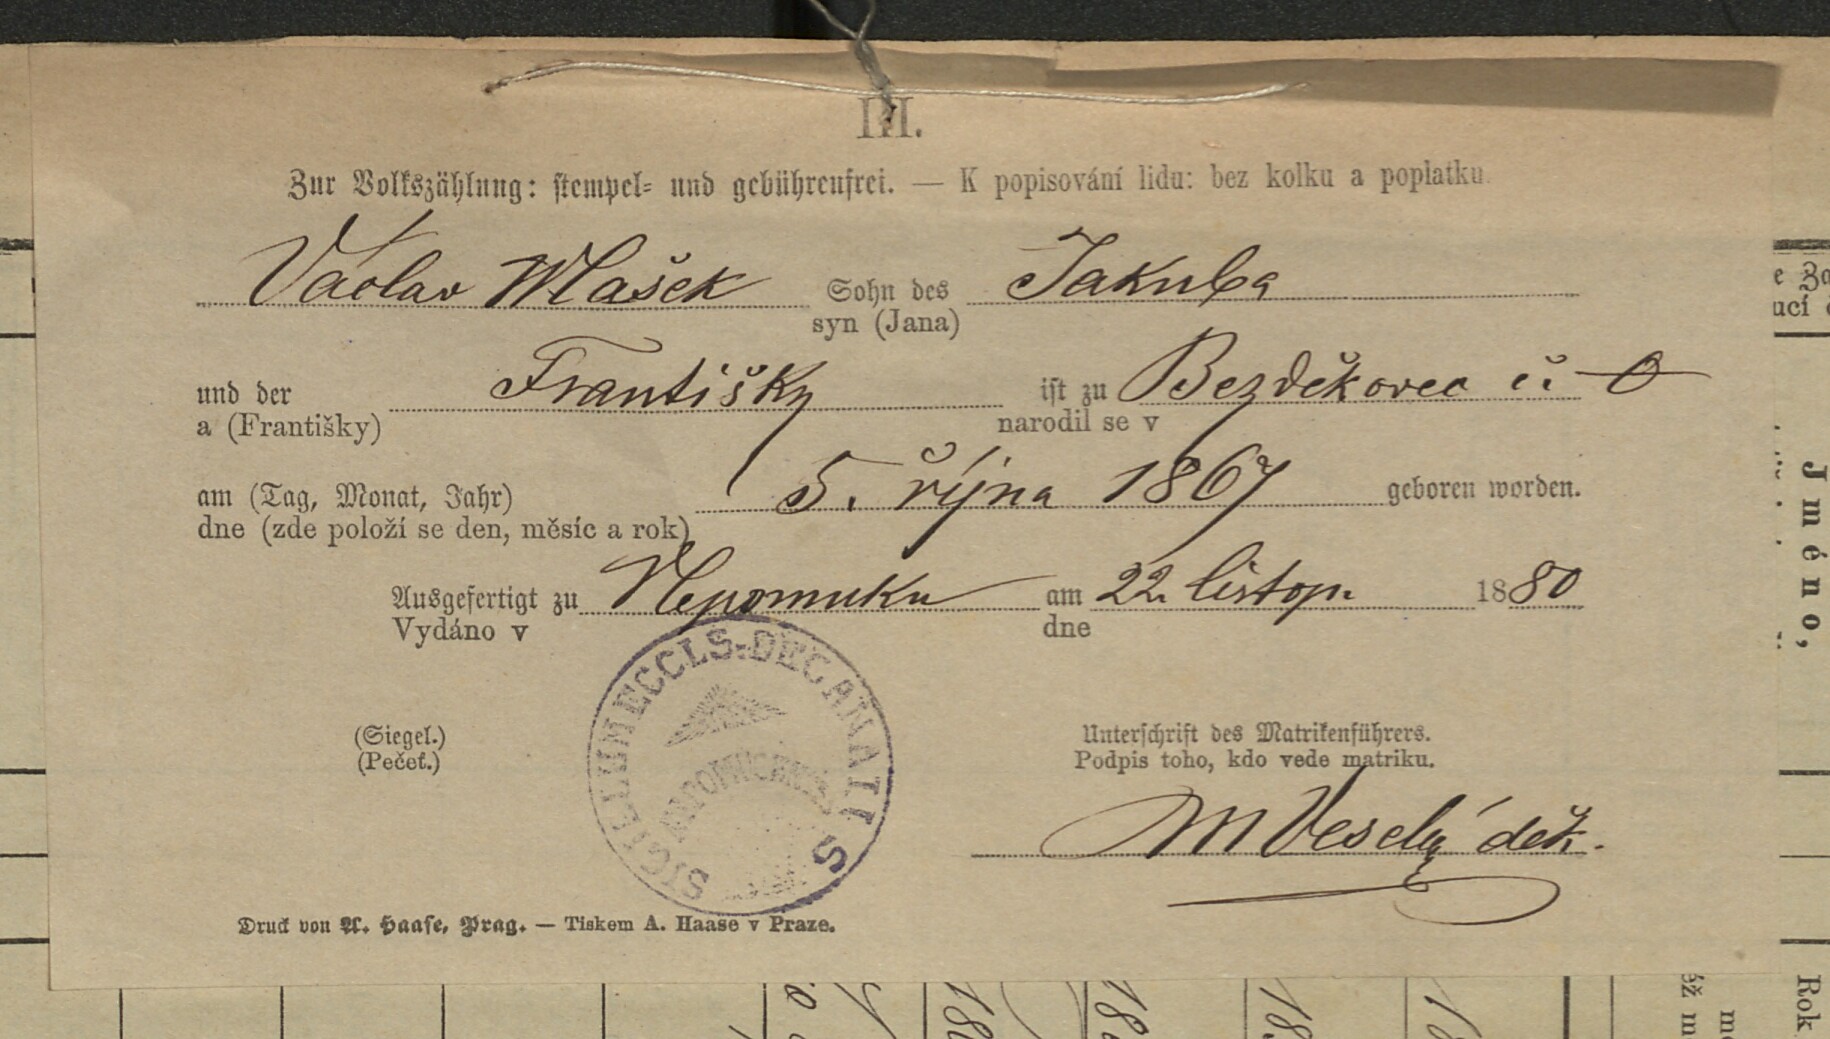 III.
Zur Volkszählung: stempel- und gebührenfrei. — K popisování lidu: bez kolku a poplatku.
Václav Wlašek Sohn des Jakuba
syn (Jana)
und der Františky ist zu Bezděkovec č. 0
a (Františky) narodil se v
am (Tag, Monat, Jahr) 5. října 1867 geboren worden.
dne (zde položí se den, měsíc a rok)
Ausgefertigt zu Nepomuku am 22. listop. 1880
Vydáno v dne
SIGILLUM ECCLS. DECANATI S
NEPOMUCENSIS
(Siegel.) Unterschrift des Matrikenführers.
(Pečeť.) Podpis toho, kdo vede matriku.
M Veselý děk.
Druck von A. Haase, Prag. — Tiskem A. Haase v Praze.
Jméno,
Rok